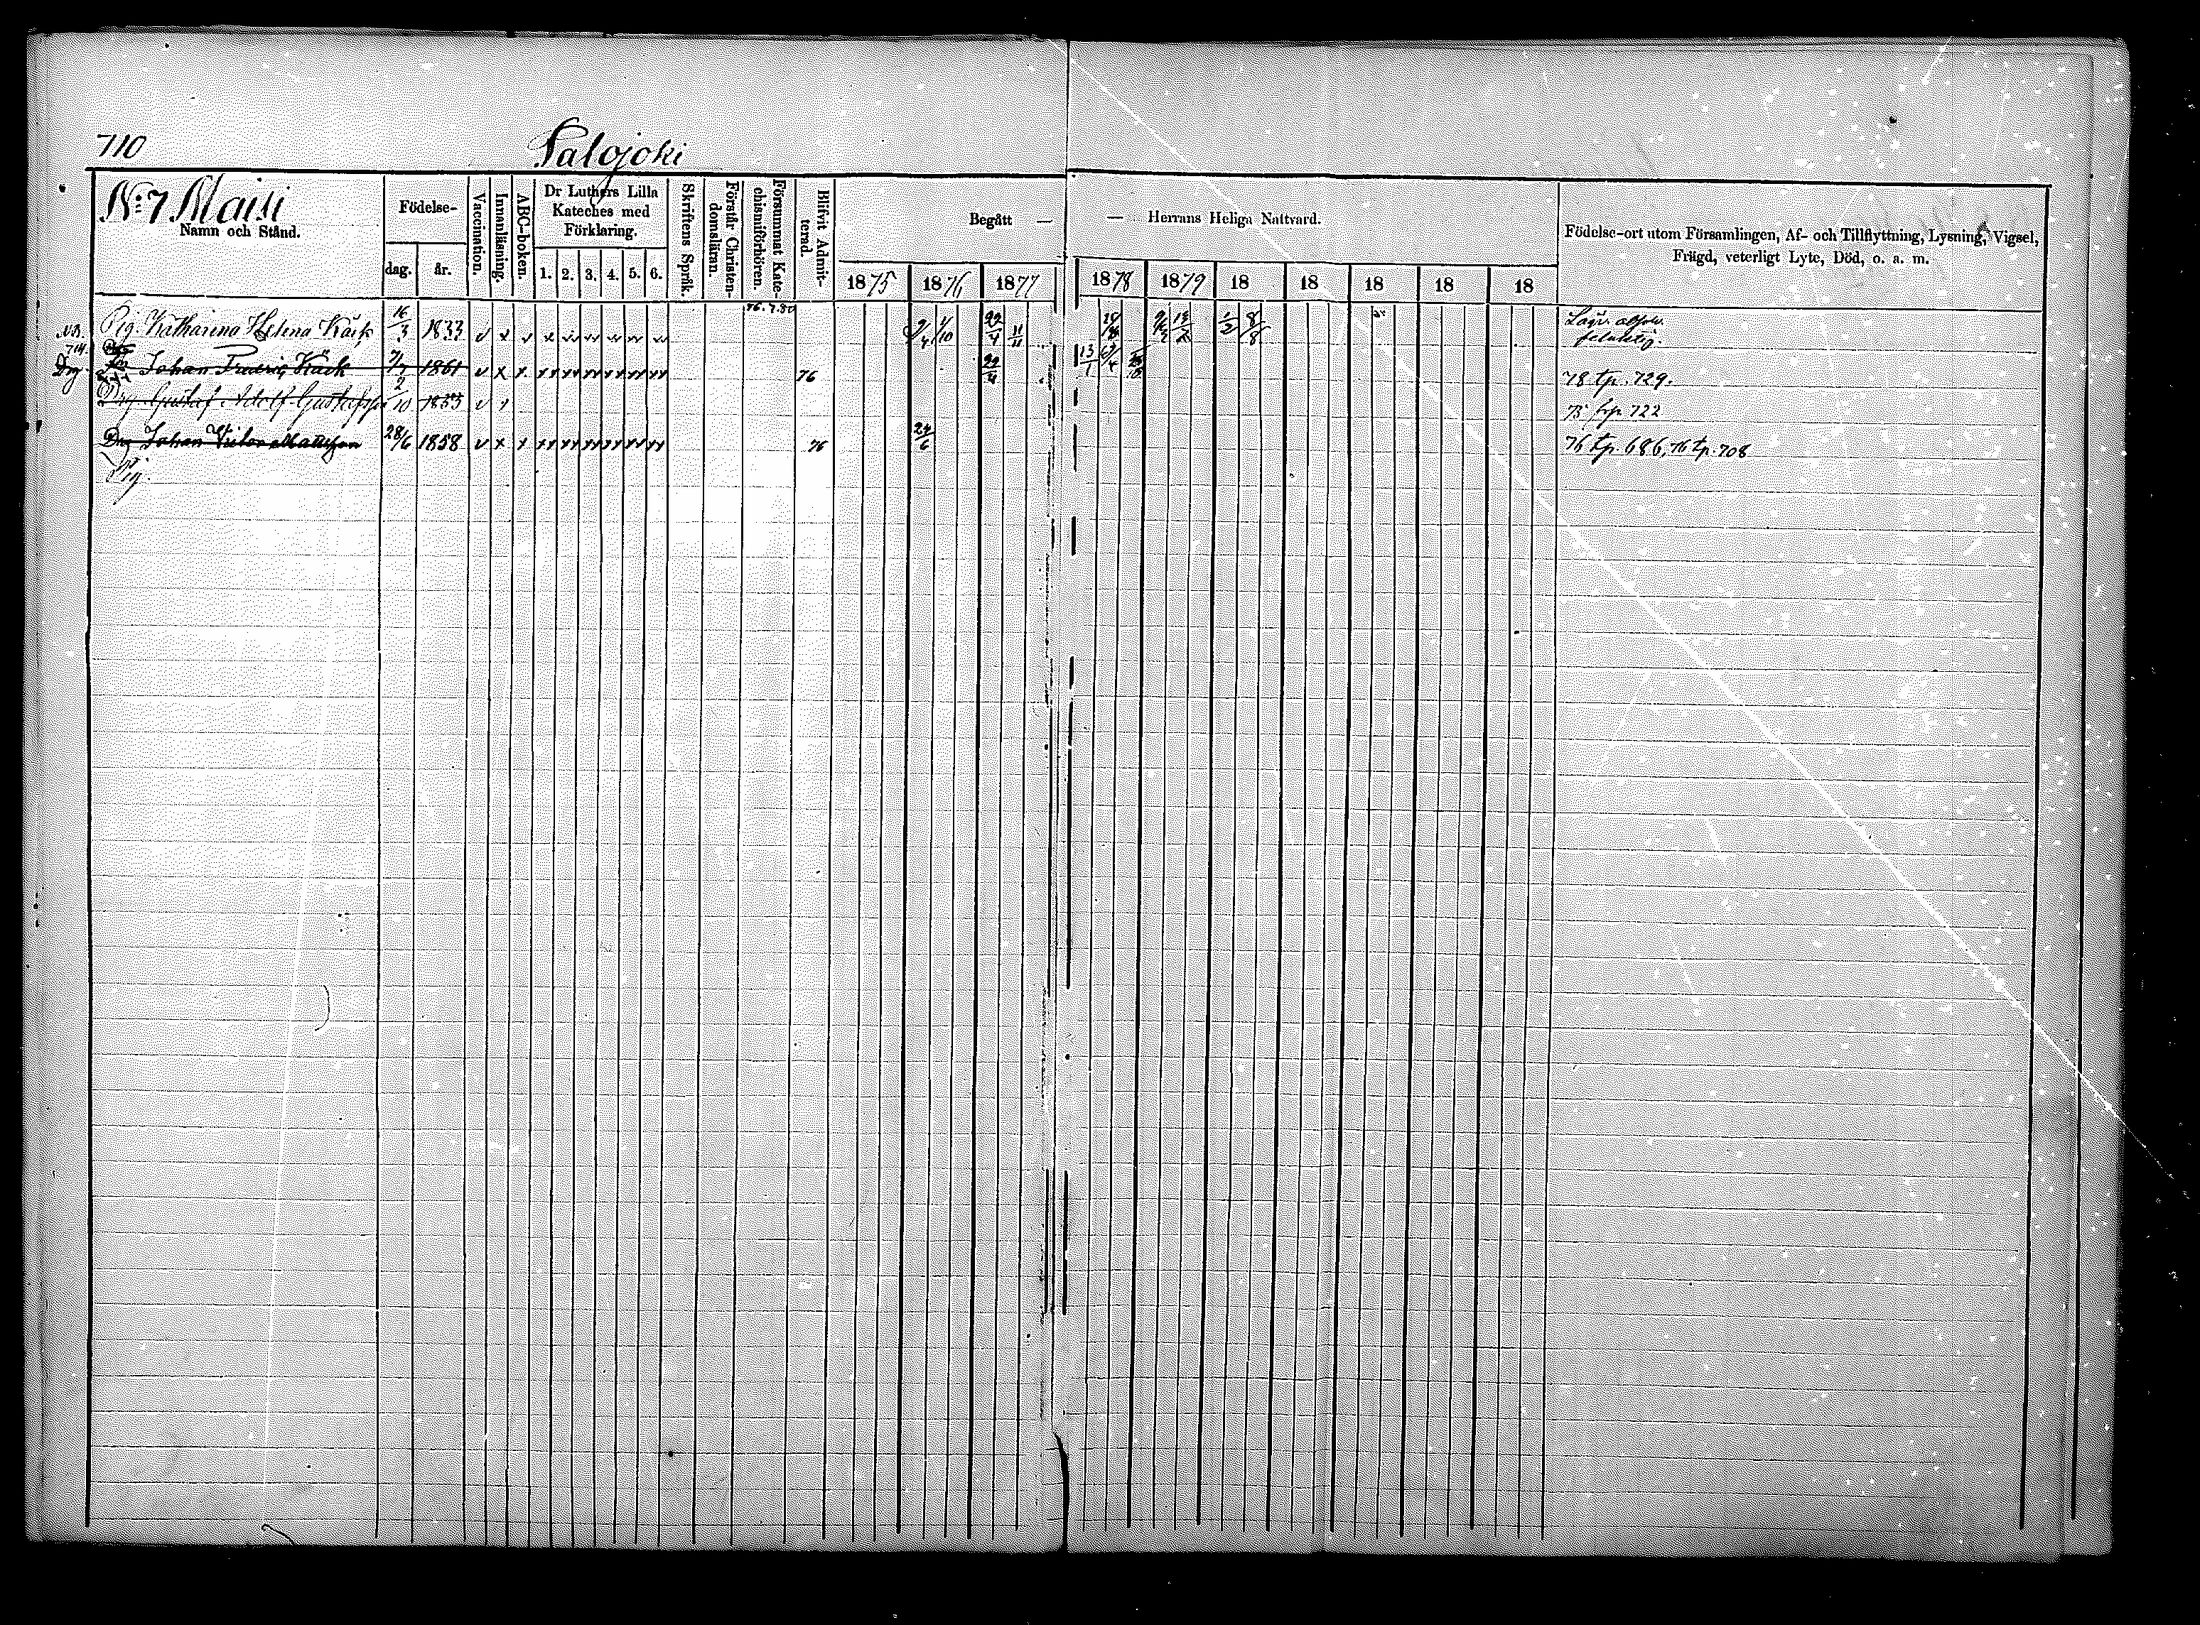 710
Palojoki
N:o 7 Maisi
Namn och Stånd.
Födelse-
dag. år.
Vaccination.
Innanläsning.
ABC-boken.
Dr Luthers Lilla
Kateches med
Förklaring.
1. 2. 3. 4. 5. 6.
Skriftens Språk.
Förstår Christen-
domsläran.
Försummat Kate-
chismiförhören.
Blifvit Admit-
terad.
Begått — — Herrans Heliga Nattvard.
1875 1876 1877 1878 1879 18 18 18 18 18
Födelse-ort utom Församlingen, Af- och Tillflyttning, Lysning, Vigsel,
Frägd, veterligt Lyte, Död, o. a. m.
Pig. Katharina Helena Käck 16/3 1833 v x v 4/10 22/4 11/11 1/2 8/8
714.
Drg. Johan Fredric Käck 7/7 1861 v x x 76 22/4 13/1 78 tp. 729.
Drg Gustaf Adolf Gustafsson 2/10 1853 v 75 tp 722
Drg Johan Victor Mattsson 28/6 1858 v x x 76 24/6 76 tp. 686, 76 tp. 708
Pig.